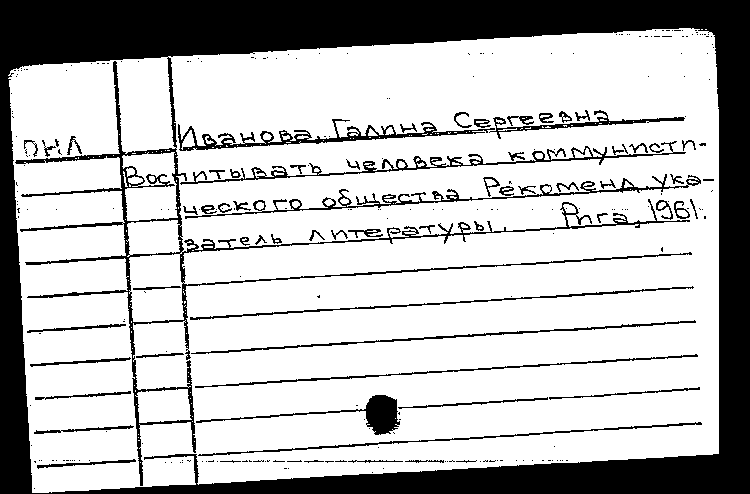 Иванова, Галина Сергеевна.
ОНЛ
Воспитывать человека коммунисти-
ческого общества. Рекоменд. ука-
затель литературы. Рига, 1961.